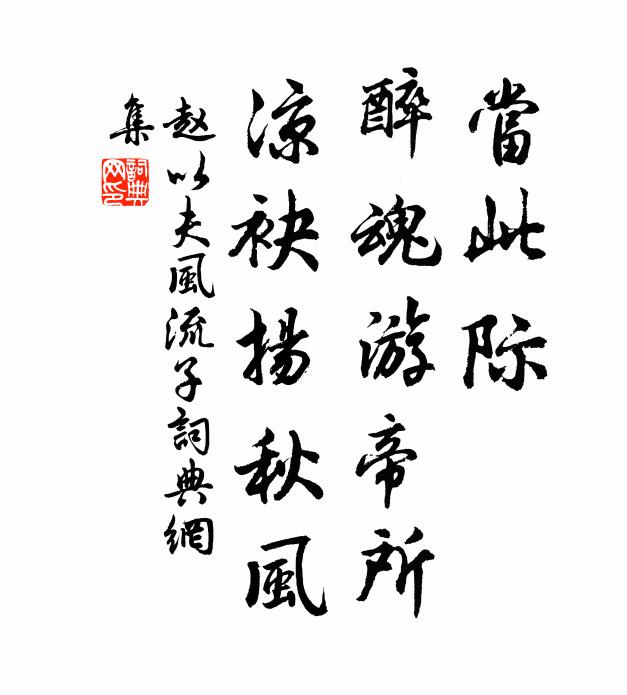 當此際
醉魂游帝所
凉袂揚秋風
赵以夫風流子詞典網
集
詞典
网印